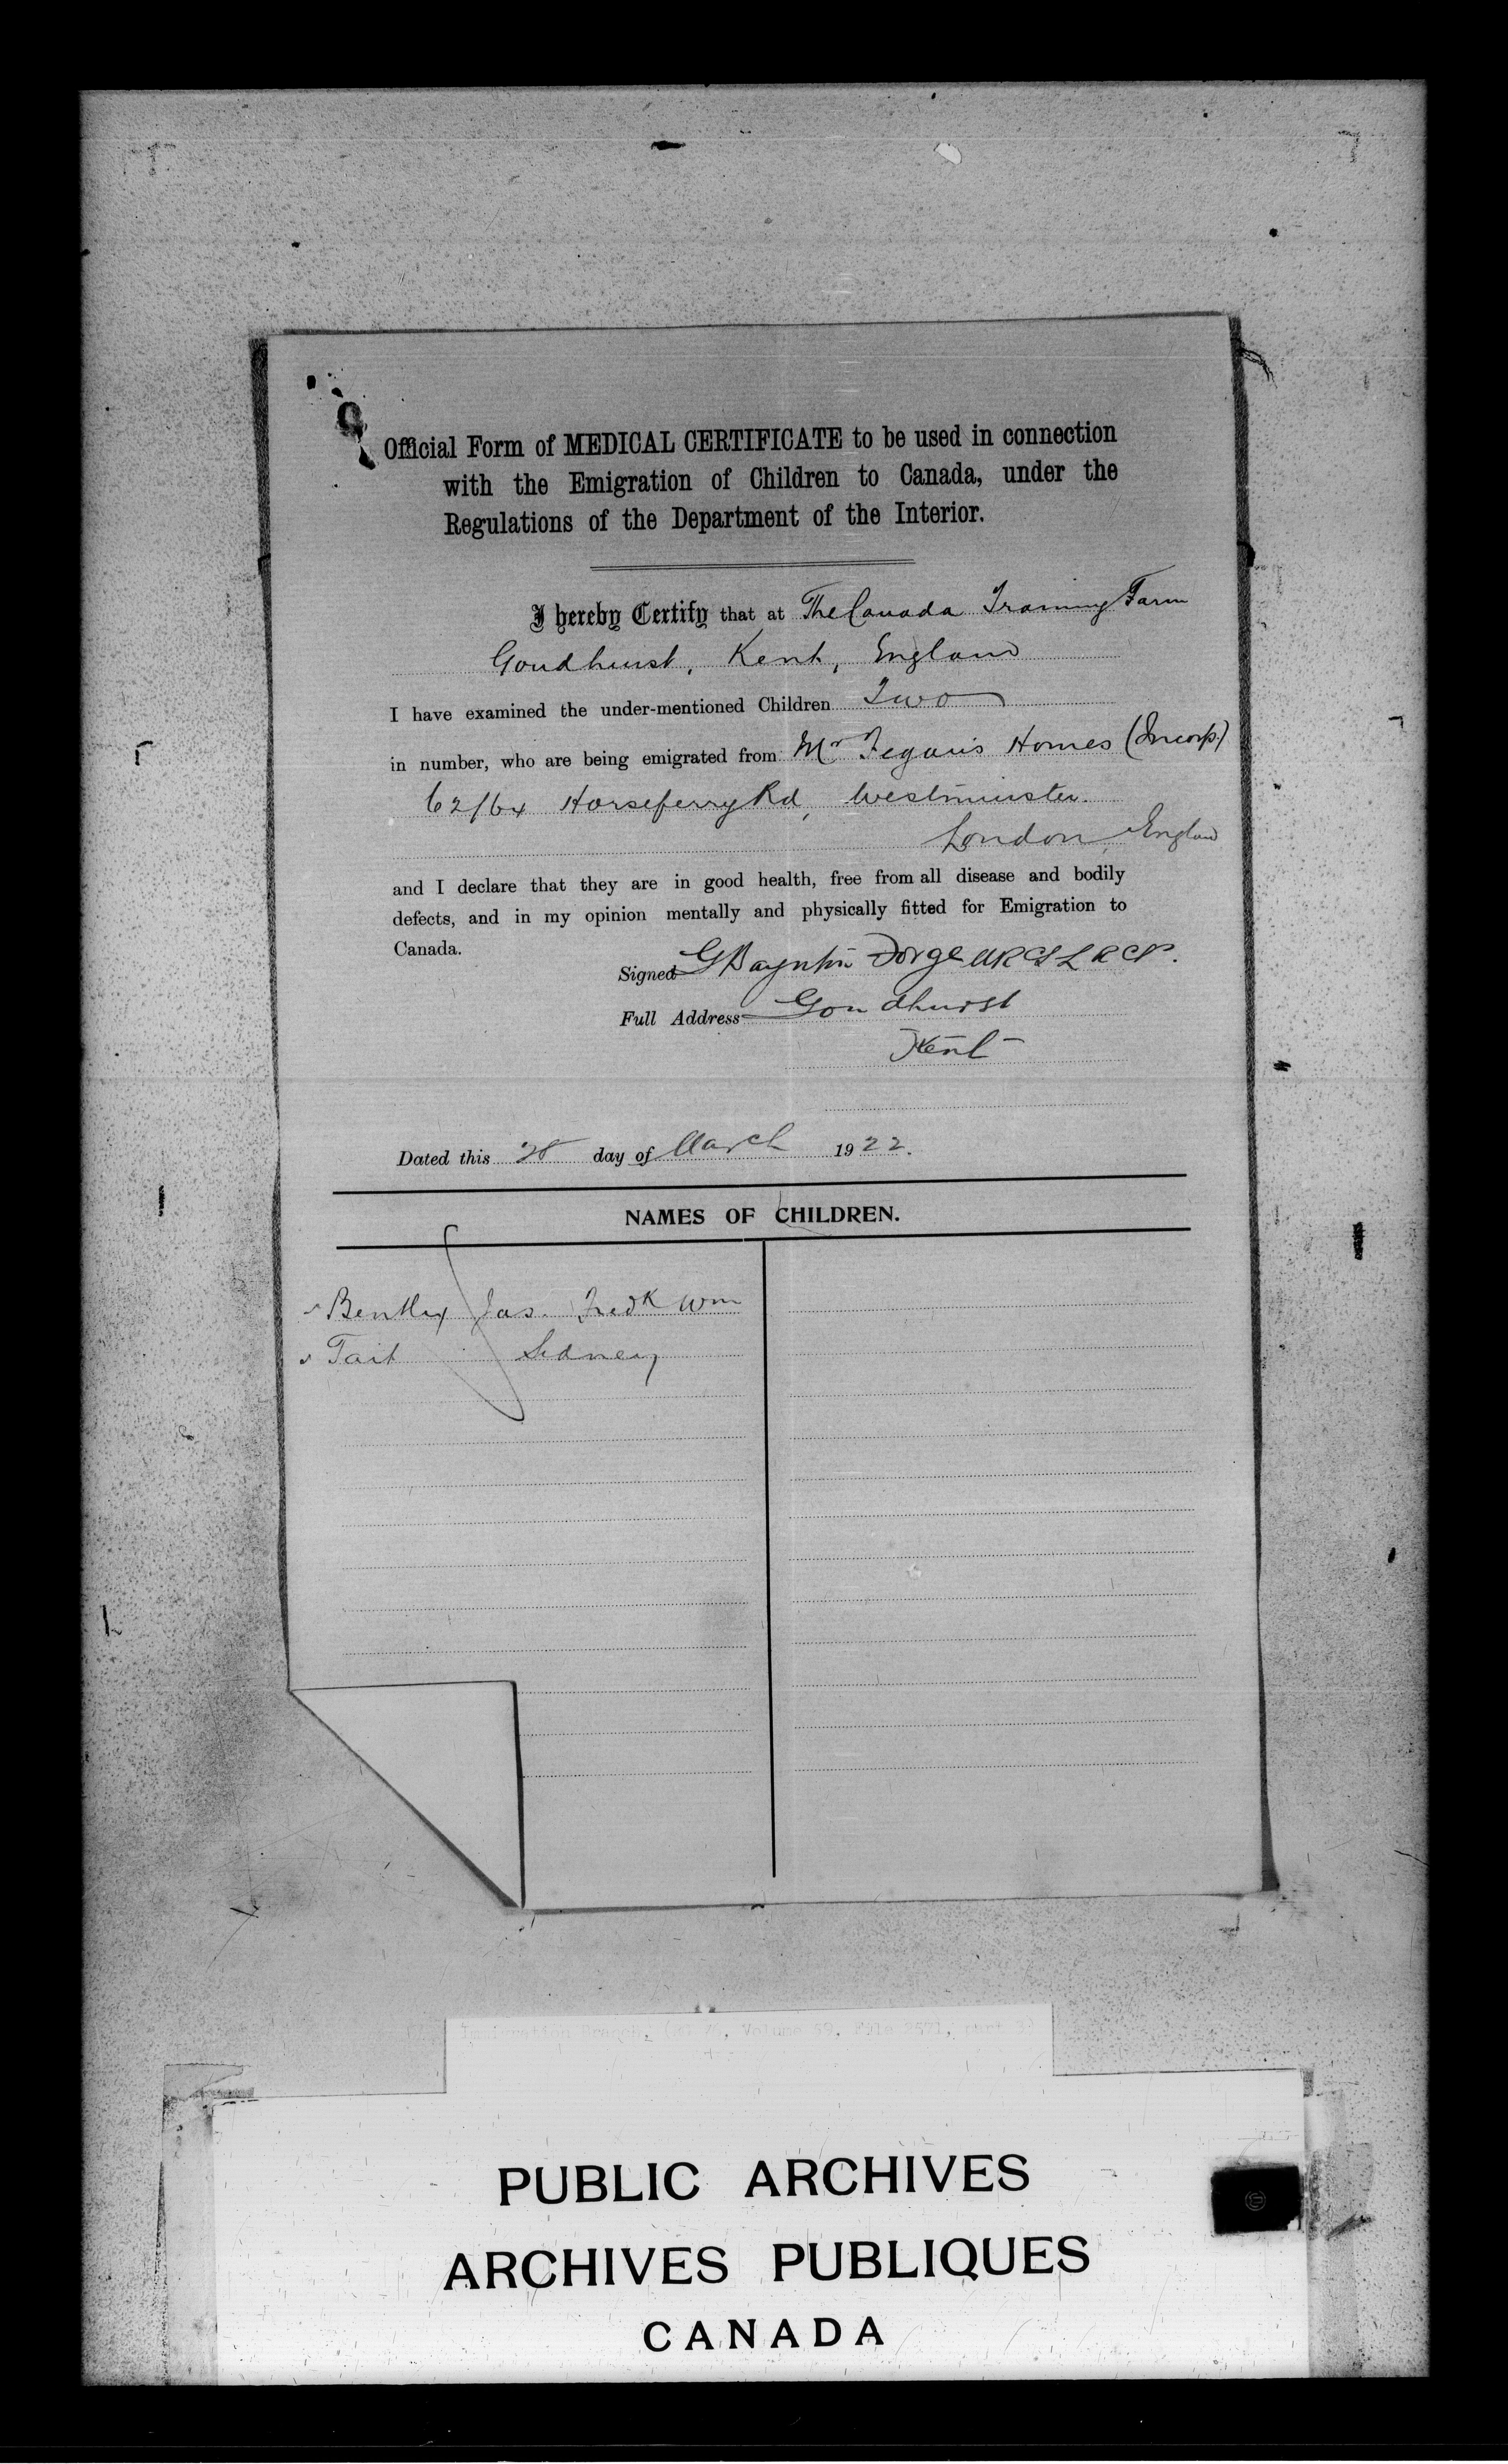 Official Form of MEDICAL CERTIFICATE to be used in connection
with the Emigration of Children to Canada, under the
Regulations of the Department of the Interior.
I hereby Certify that at The Canada Training Farm
Goudhurst, Kent, England
I have examined the under-mentioned Children Two
in number, who are being emigrated from Mr Fegan's Homes (Incorp.)
62/64 Horseferry Rd, Westminster.
London, England
and I declare that they are in good health, free from all disease and bodily
defects, and in my opinion mentally and physically fitted for Emigration to
Canada.
Signed G Bayntin MRCS LRCP.
Full Address Goudhurst
Kent
Dated this 28 day of March 1922.
NAMES OF CHILDREN.
Bentley Jas. Fredk Wm
Tait Sidney
Immigration Branch, Volume 59, File
PUBLIC ARCHIVES
ARCHIVES PUBLIQUES
CANADA